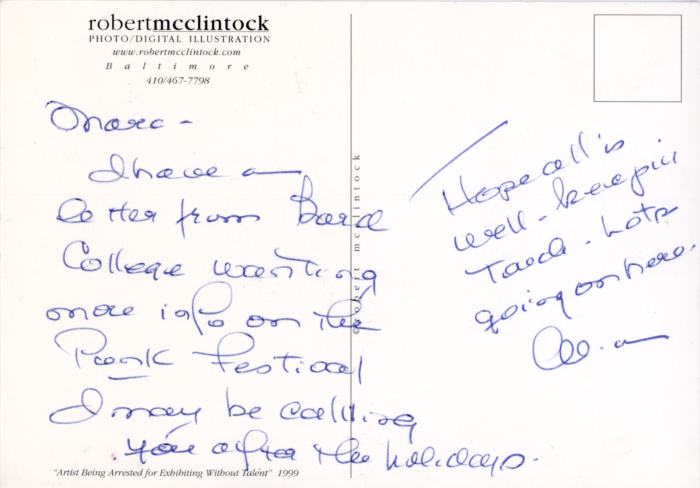 robertmcclintock
PHOTO/DIGITAL ILLUSTRATION
www.robertmcclintock.com
Baltimore
410/467-7798
Marc -
I have a
letter from Bard
College wanting
more info on the
Punk Festival
I may be calling
you after the holidays.
"Artist Being Arrested for Exhibiting Without Talent" 1999
© robert mcclintock
Hope all is
well - keep in
Touch - Lots
going on here.